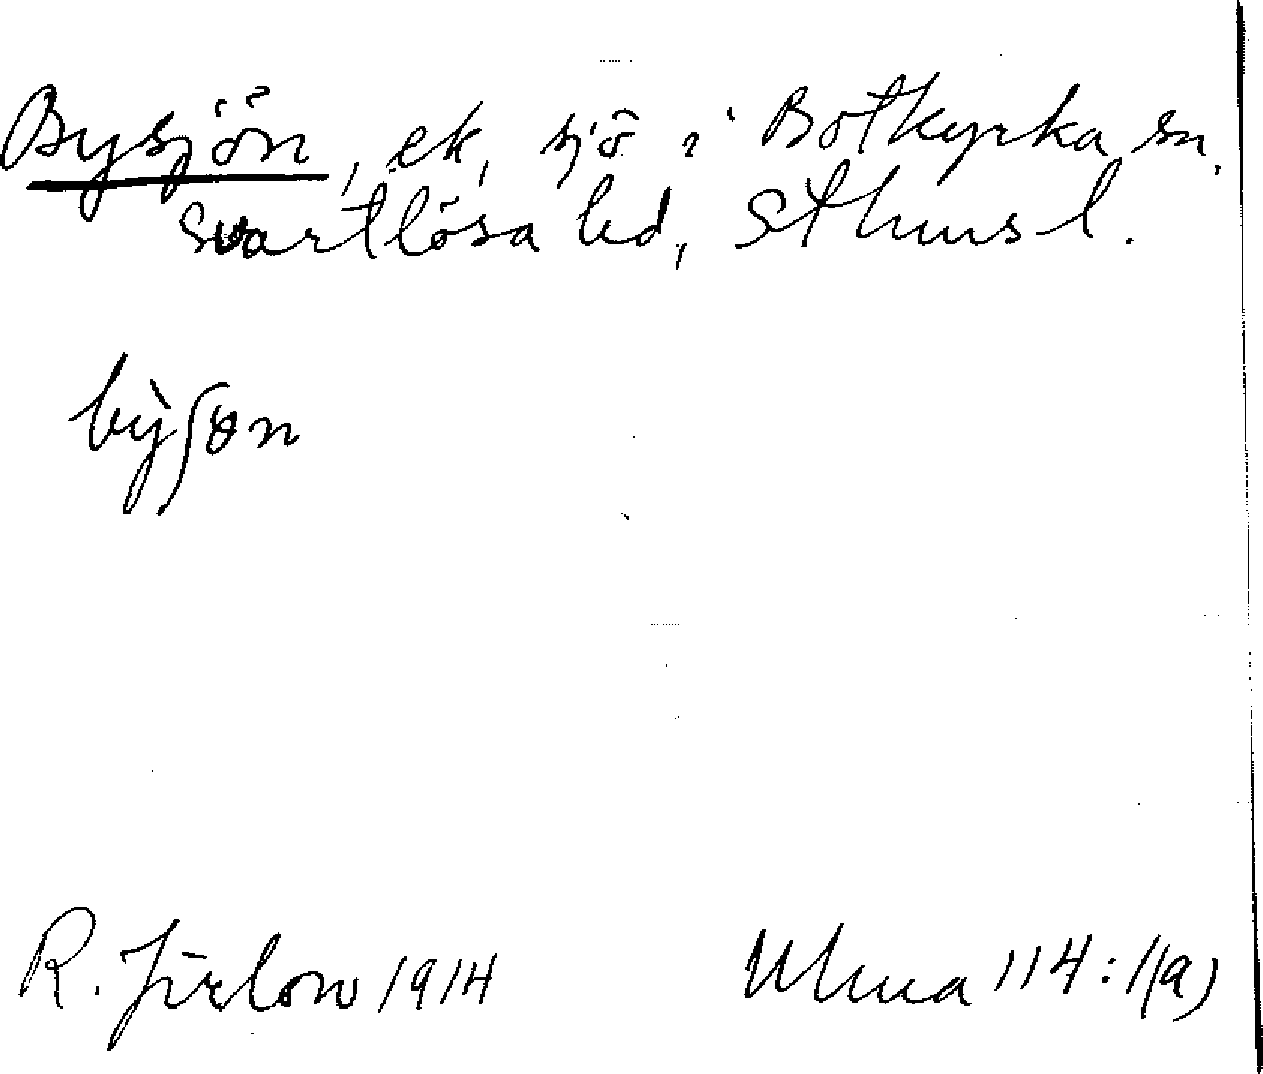 Bysjön, ek, sjö i Botkyrka sn,
Svartlösa hd, Sthms l.
bỳʃɵn
R. Jirlow 1914
Ulma 114:1(a)